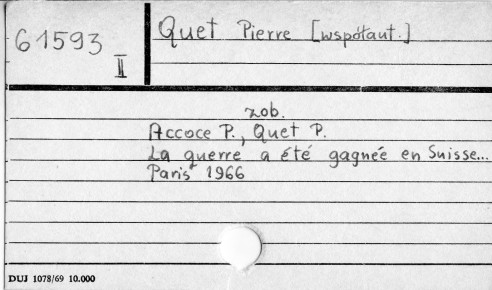 61593
II
Quet Pierre [współaut.]
zob.
Accoce P., Quet P.
La guerre a été gagnée en Suisse...
Paris 1966
DUJ 1078/69 10.000